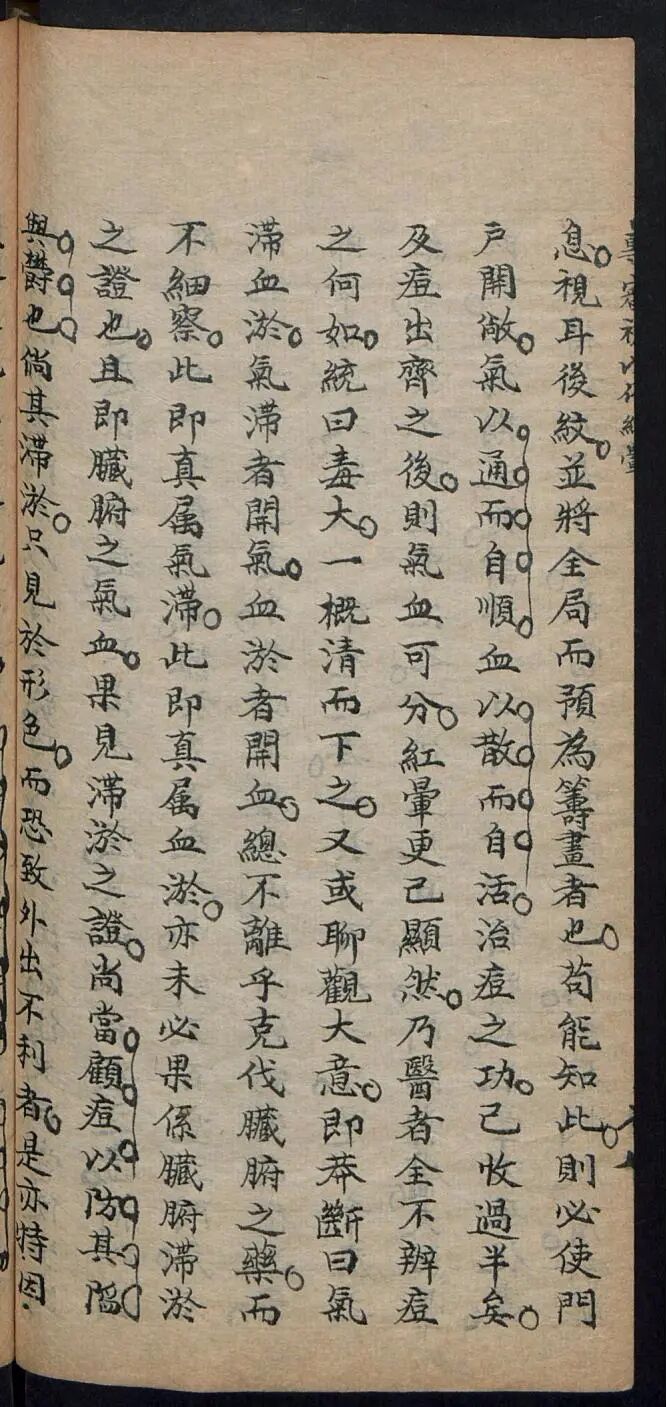 息視耳後紋並將全局而預為籌畫者也苟能知此則必使門
戶開敞氣以通而自順血以散而自活治痘之功已收過半矣
及痘出齊之後則氣血可分紅暈更已顯然乃醫者全不辨痘
之何如統曰毒大一概清而下之又或聊觀大意即莽斷曰氣
滯血淤氣滯者開氣血淤者開血總不離乎克伐臟腑之藥而
不細察此即真属氣滯此即真属血淤亦未必果係臟腑滯淤
之證也且即臟腑之氣血果見滯淤之證尚當顧痘以防其陷
與欝也倘其滯淤只見於形色而恐致外出不利者是亦特因